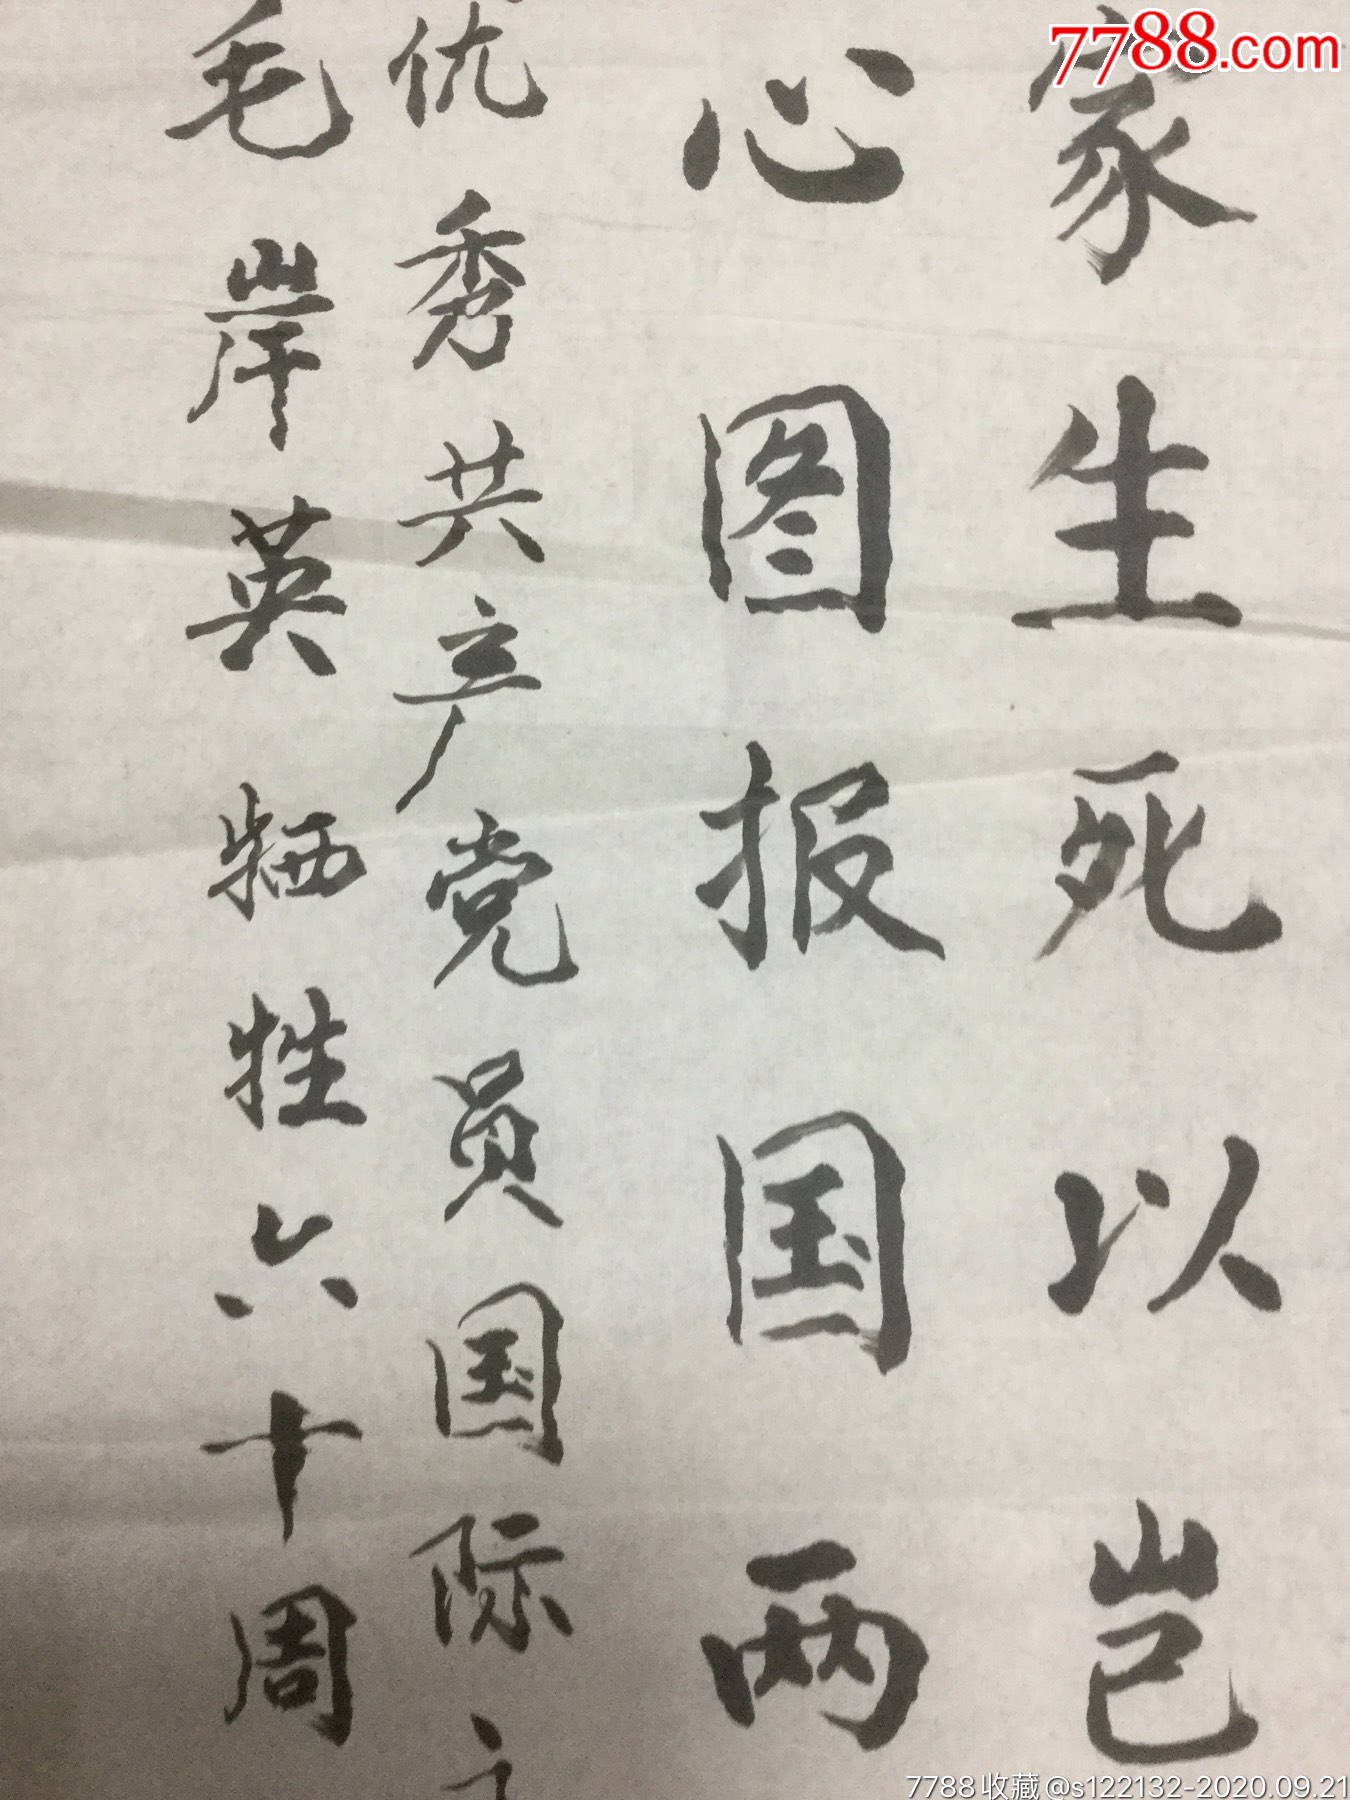 7788.com
家生死以岂
心图报国两
优秀共产党员国际
毛岸英牺牲六十周
7788收藏@s122132-2020.09.21